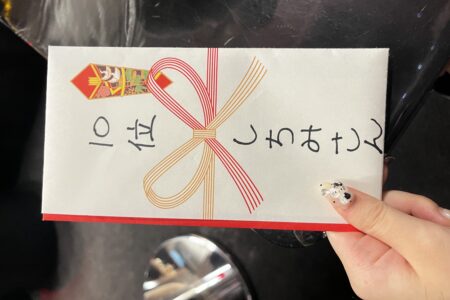 10位
しちみさん